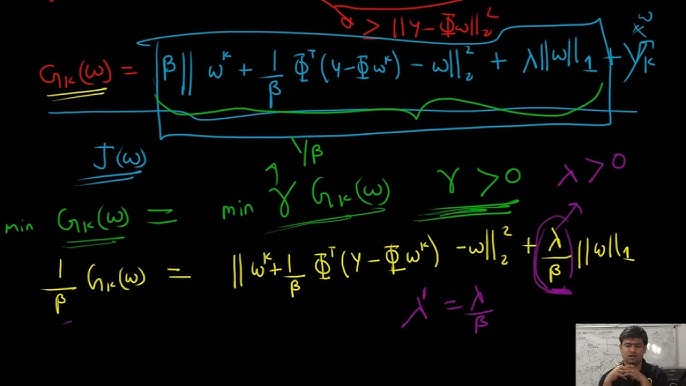 α > ||y-Φω||₂²
G_k(ω) = β || ω^k + 1/β Φ^T (y-Φω^k) - ω||₂² + λ||ω||₁ + γ_k
J(ω)
1/β
min G_k(ω) = min γ G_k(ω) γ > 0 λ > 0
1/β G_k(ω) = ||ω^k + 1/β Φ^T (y - Φω^k) - ω||₂² + λ/β ||ω||₁
λ' = λ/β